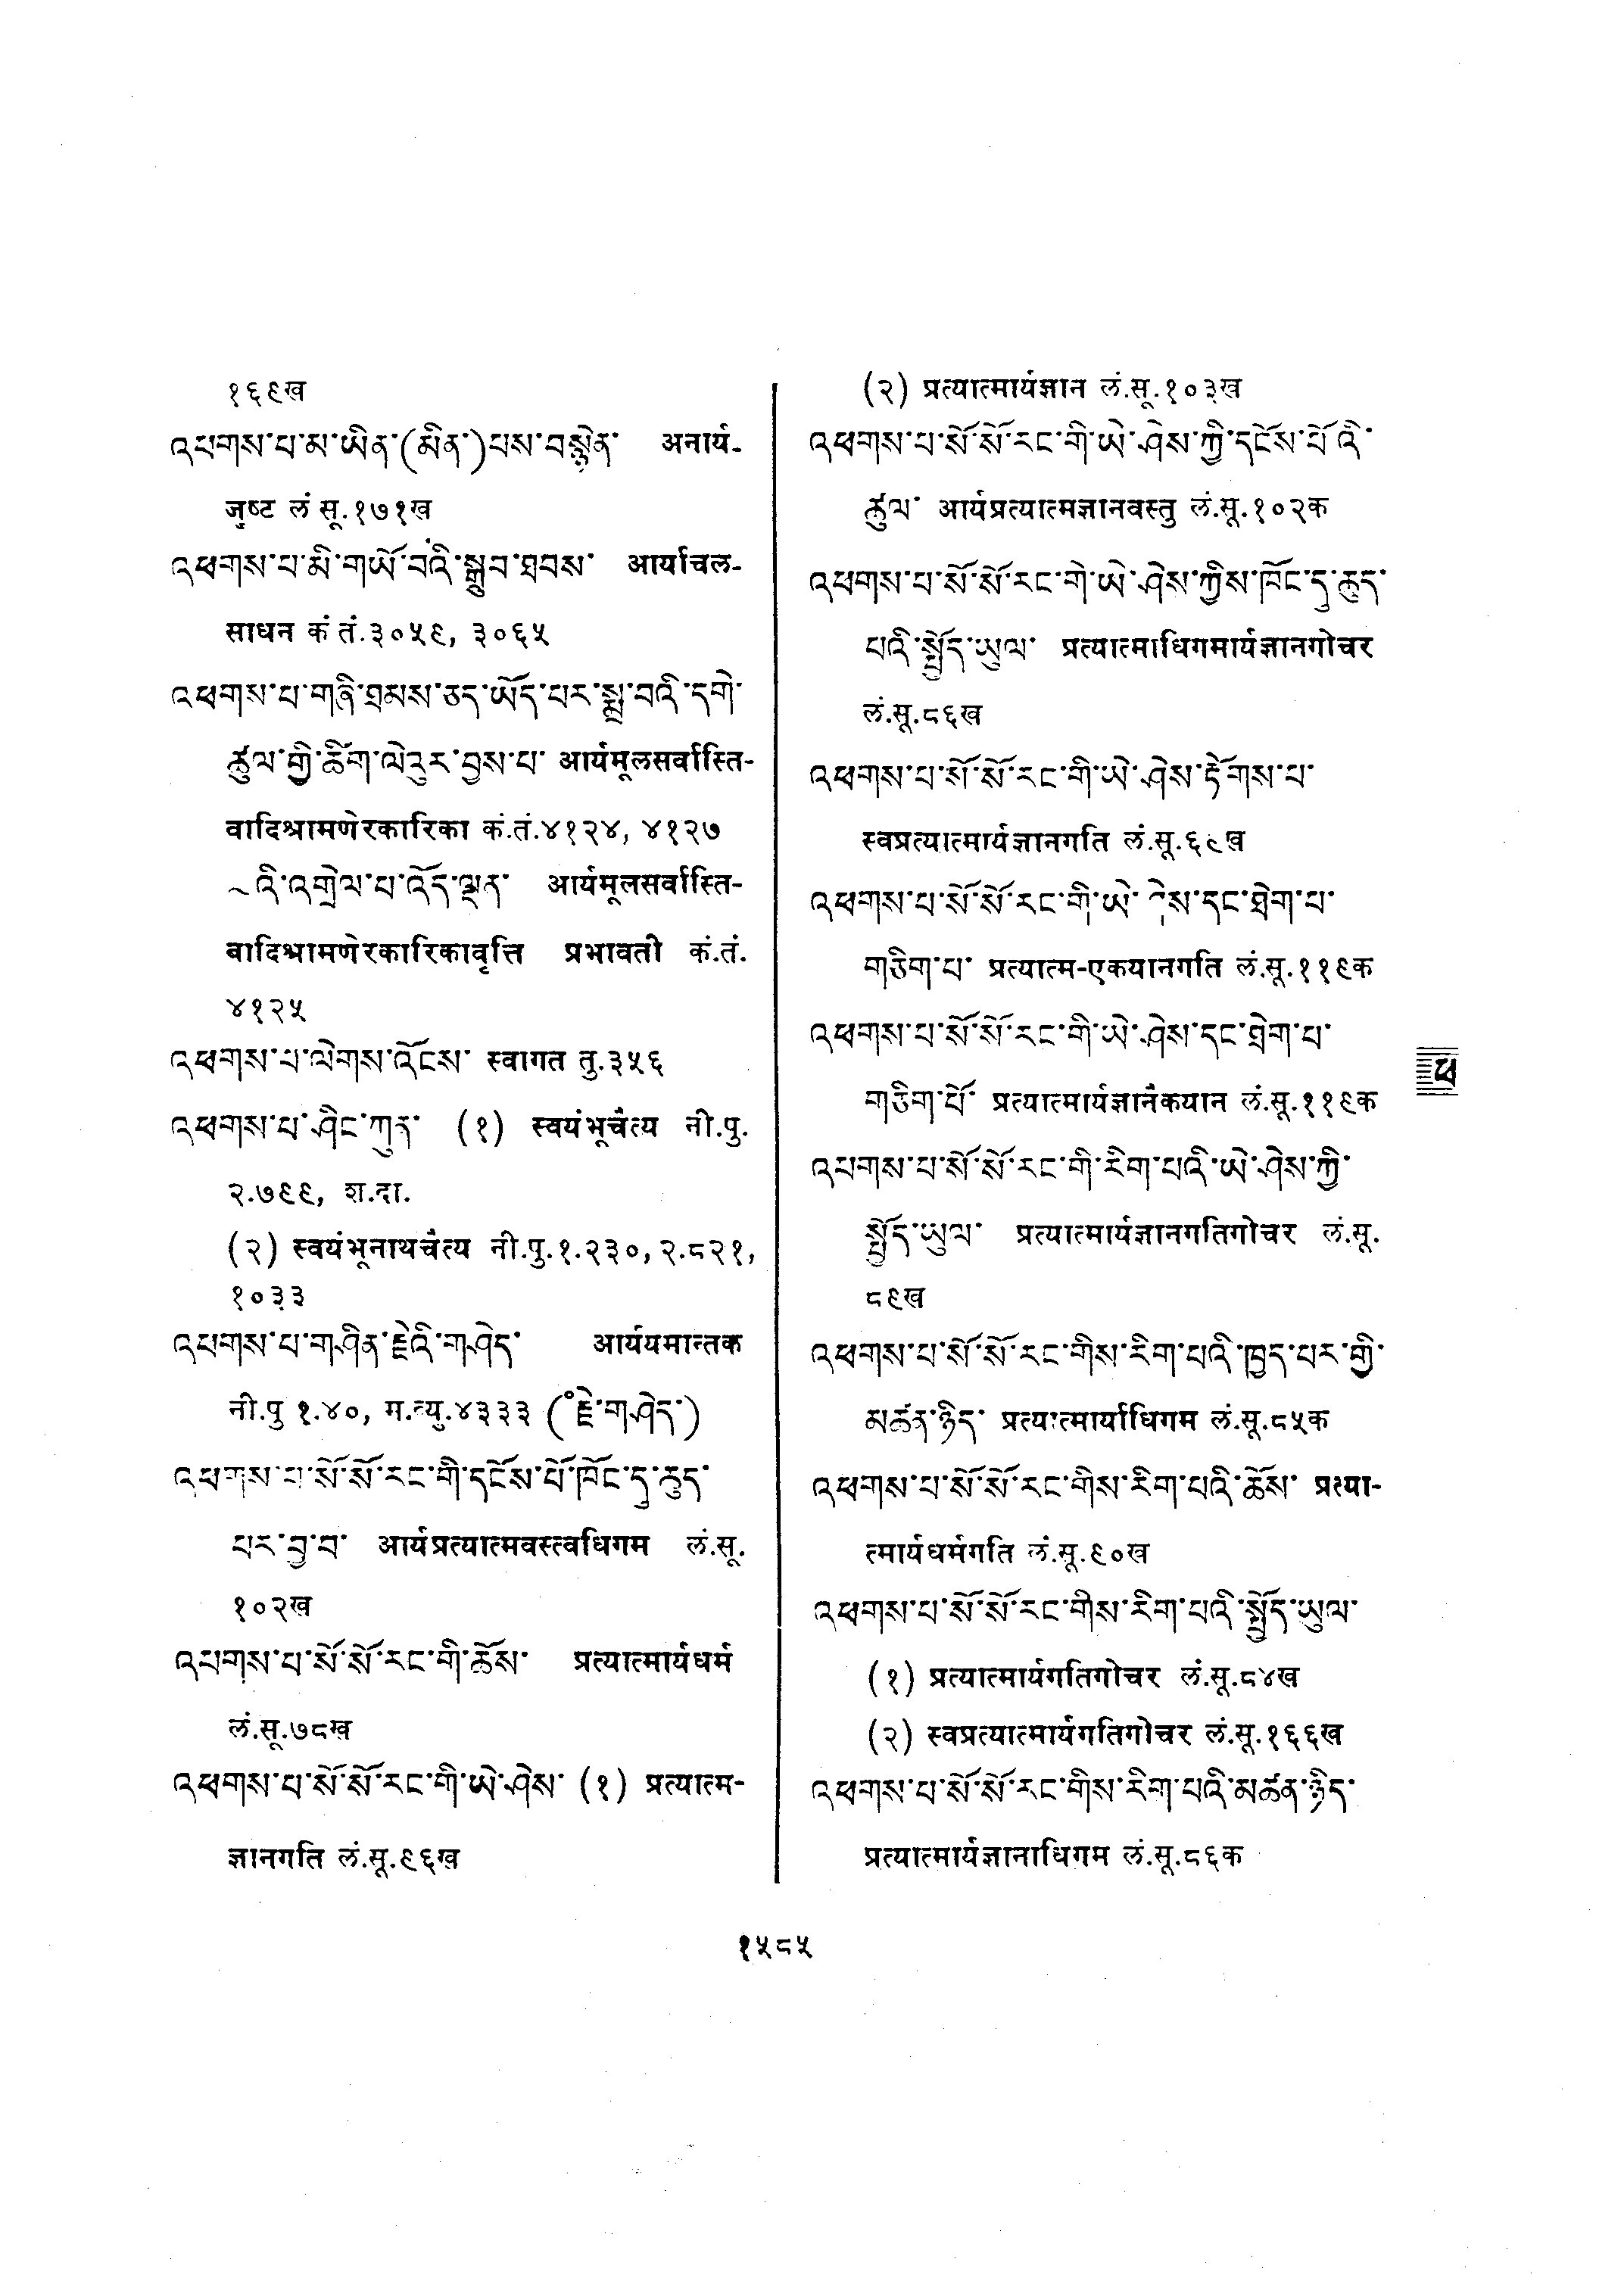 १६९ख
འཔགས་པ་མ་ཡིན་(མིན་)པས་བསྙེན་ अनार्य-
जुष्ट लं सू.१७१ख
འཕགས་པ་མི་གཡོ་བའི་སྒྲུབ་ཐབས་ आर्याचल-
साधन कं तं.३०५९, ३०६५
འཕགས་པ་གཞི་ཐམས་ཅད་ཡོད་པར་སྨྲ་བའི་དགེ་
ཚུལ་གྱི་ཚིག་ལེའུར་བྱས་པ་ आर्यमूलसर्वास्ति-
वादिश्रामणेरकारिका कं.तं.४१२४, ४१२७
~འི་འགྲེལ་པ་འོད་ལྡན་ आर्यमूलसर्वास्ति-
वादिश्रामणेरकारिकावृत्ति प्रभावती कं.तं.
४१२५
འཕགས་པ་ལེགས་འོངས་ स्वागत तु.३५६
འཕགས་པ་ཤིང་ཀུན་ (१) स्वयंभूचैत्य नी.पु.
२.७९९, श.दा.
(२) स्वयंभूनाथचैत्य नी.पु.१.२३०, २.८२१,
१०३३
འཔགས་པ་གཤིན་རྗེའི་གཤེད་ आर्ययमान्तक
नी.पु १.४०, म.व्यु.४३३३ (°རྗེ་གཤེད་)
འཕགས་པ་སོ་སོ་རང་གི་དངོས་པོ་ཁོང་དུ་ཆུད་
པར་བྱ་བ་ आर्यप्रत्यात्मवस्त्वधिगम लं.सू.
१०२ख
འཔགས་པ་སོ་སོ་རང་གི་ཆོས་ प्रत्यात्मार्यधर्म
लं.सू.७८ख
འཕགས་པ་སོ་སོ་རང་གི་ཡེ་ཤེས་ (१) प्रत्यात्म-
ज्ञानगति लं.सू.९६ख
(२) प्रत्यात्मार्यज्ञान लं.सू.१०३ख
འཕགས་པ་སོ་སོ་རང་གི་ཡེ་ཤེས་ཀྱི་དངོས་པོ་འི་
ཚུལ་ आर्यप्रत्यात्मज्ञानवस्तु लं.सू.१०२क
འཕགས་པ་སོ་སོ་རང་གེ་ཡེ་ཤེས་ཀྱིས་ཁོང་དུ་ཆུད་
པའི་སྤྱོད་ཡུལ་ प्रत्यात्माधिगमार्यज्ञानगोचर
लं.सू.८६ख
འཕགས་པ་སོ་སོ་རང་གི་ཡེ་ཤེས་རྟོགས་པ་
स्वप्रत्यात्मार्यज्ञानगति लं.सू.६९ख
འཕགས་པ་སོ་སོ་རང་གི་ཡེ་ཤེས་དང་ཐེག་པ་
གཅིག་པ་ प्रत्यात्म-एकयानगति लं.सू.११९क
འཕགས་པ་སོ་སོ་རང་གི་ཡེ་ཤེས་དང་ཐེག་པ་
གཅིག་པོ་ प्रत्यात्मार्यज्ञानैकयान लं.सू.११९क
འཔགས་པ་སོ་སོ་རང་གི་རིག་པའི་ཡེ་ཤེས་ཀྱི་
སྤྱོད་ཡུལ་ प्रत्यात्मार्यज्ञानगतिगोचर लं.सू.
८९ख
འཕགས་པ་སོ་སོ་རང་གིས་རིག་པའི་ཁྱད་པར་གྱི་
མཚན་ཉིད་ प्रत्यात्मार्याधिगम लं.सू.८५क
འཕགས་པ་སོ་སོ་རང་གིས་རིག་པའི་ཆོས་ प्रत्या-
त्मार्यधर्मगति लं.सू.९०ख
འཕགས་པ་སོ་སོ་རང་གིས་རིག་པའི་སྤྱོད་ཡུལ་
(१) प्रत्यात्मार्यगतिगोचर लं.सू.८४ख
(२) स्वप्रत्यात्मार्यगतिगोचर लं.सू.१६६ख
འཕགས་པ་སོ་སོ་རང་གིས་རིག་པའི་མཚན་ཉིད་
प्रत्यात्मार्यज्ञानाधिगम लं.सू.८६क
ཕ
१५८५